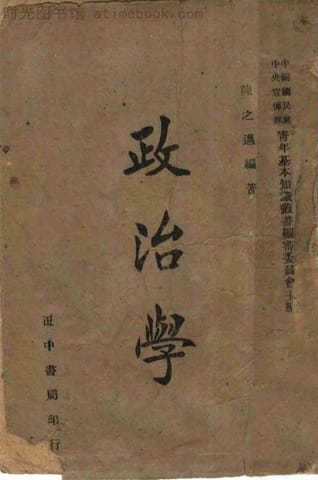 时光图书馆 atimebook.com
中國國民黨
中央宣傳部
青年基本知識叢書編審委員會主編
陳之邁編著
政治學
正中書局印行